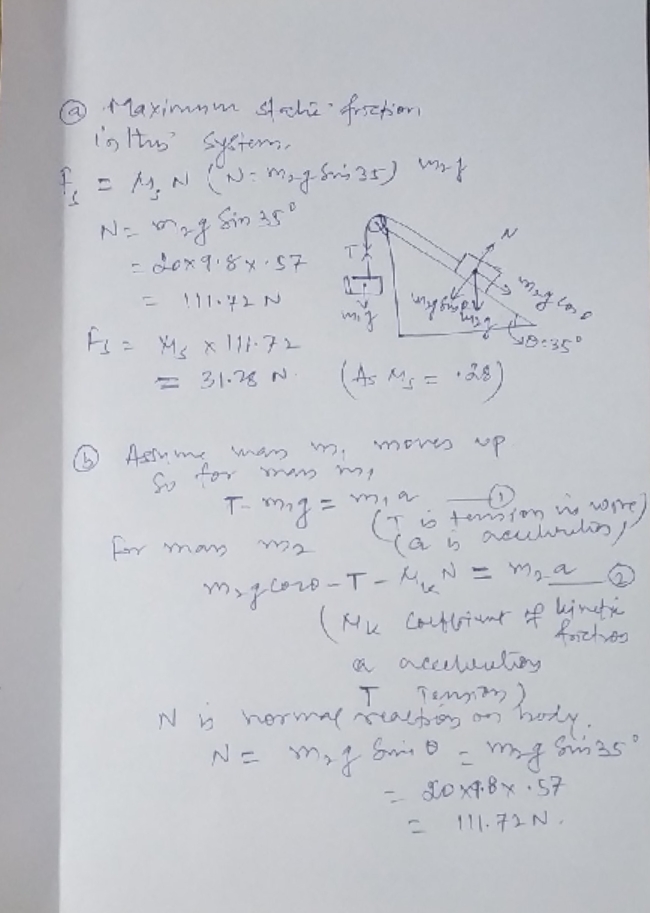 (a) Maximum static friction
in this system.
Fs = μs N (N = m2g Sin 35) m2g
N = m2g Sin 35°
= 20 x 9.8 x .57
= 111.72 N
T
m1g
N
m2g cos θ
m2g Sin θ
m2g
θ = 35°
Fs = μs x 111.72
= 31.28 N. (As μs = .28)
(b) Assume mass m1 moves up
So for mass m1
T - m1g = m1a — (1)
(T is tension in wire)
(a is acceleration)
for mass m2
m2g cos θ - T - μk N = m2a — (2)
(μk coefficient of kinetic
friction
a acceleration
T Tension)
N is normal reaction on body.
N = m2g Sin θ = m2g Sin 35°
= 20 x 9.8 x .57
= 111.72 N.